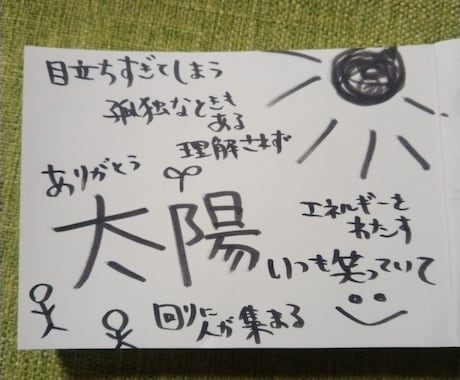 目立ちすぎてしまう
孤独なときも
ある
理解されず
ありがとう
太陽
エネルギーを
わたす
いつも笑っていて
回りに
人が集まる